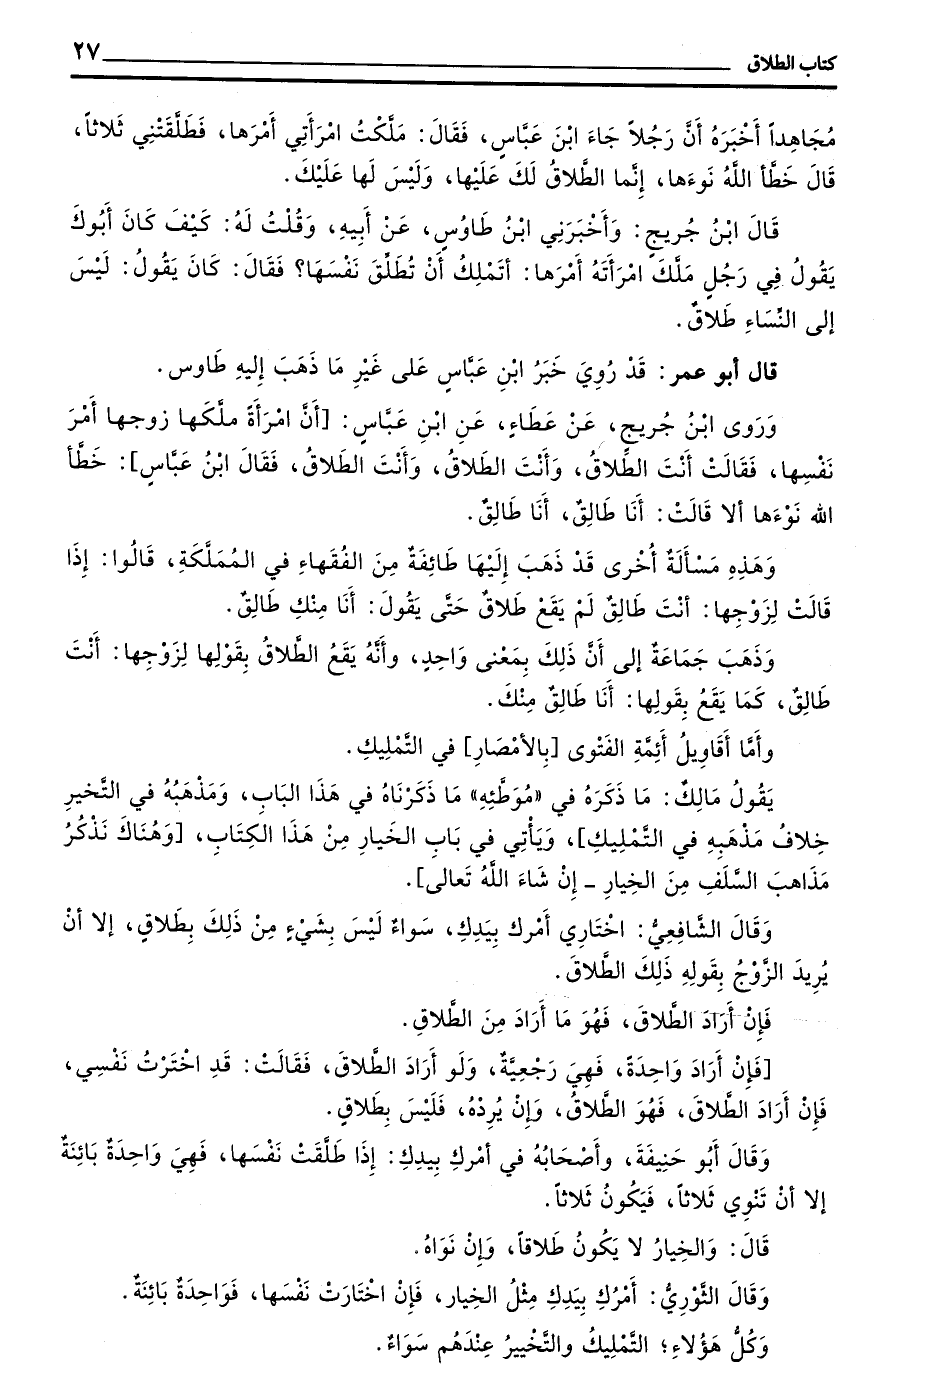 كتاب الطلاق ٢٧
مُجَاهِداً أَخْبَرَهُ أَنَّ رَجُلاً جَاءَ ابْنَ عَبَّاسٍ، فَقَالَ: مَلَّكْتُ امْرَأَتِي أَمْرَها، فَطَلَّقَتْنِي ثَلاثاً،
قَالَ خَطَّأَ اللَّهُ نَوءَها، إِنَّما الطَّلاقُ لَكَ عَلَيْها، وَلَيْسَ لَها عَلَيْكَ.
قَالَ ابْنُ جُريجٍ: وَأَخْبَرَنِي ابْنُ طَاوُسٍ، عَنْ أَبِيهِ، وَقُلْتُ لَهُ: كَيْفَ كَانَ أَبُوكَ
يَقُولُ فِي رَجُلٍ مَلَّكَ امْرَأَتَهُ أَمْرَها: أَتَمْلِكُ أَنْ تُطَلِّقَ نَفْسَهَا؟ فَقَالَ: كَانَ يَقُولُ: لَيْسَ
إلى النِّسَاءِ طَلاقٌ.
قال أبو عمر: قَدْ رُوِيَ خَبَرُ ابْنِ عَبَّاسٍ عَلى غَيْرِ مَا ذَهَبَ إِليهِ طَاوس.
وَرَوى ابْنُ جُريجٍ، عَنْ عَطَاءٍ، عَنِ ابْنِ عَبَّاسٍ: [أَنَّ امْرَأَةً ملَّكَها زوجها أَمْرَ
نَفْسِها، فَقَالَتْ أَنْتَ الطَّلاقُ، وَأَنْتَ الطَلاقُ، وَأَنْتَ الطَلاقُ، فَقَالَ ابْنُ عَبَّاسٍ]: خَطَّأَ
الله نَوْءَها ألا قَالَتْ: أَنَا طَالِقٌ، أَنَا طَالِقٌ.
وَهَذِهِ مَسْأَلَةٌ أُخْرى قَدْ ذَهَبَ إِلَيْهَا طَائِفَةٌ مِنَ الفُقَهاءِ في المُمَلَّكَةِ، قَالُوا: إِذَا
قَالَتْ لِزَوْجِها: أنْتَ طَالِقٌ لَمْ يَقَعْ طَلاقٌ حَتَّى يَقُولَ: أَنَا مِنْكِ طَالِقٌ.
وَذَهَبَ جَمَاعَةٌ إلى أَنَّ ذَلِكَ بِمَعْنى وَاحِدٍ، وأَنَّهُ يَقَعُ الطَّلاقُ بِقَوْلِها لِزَوْجِها: أَنْتَ
طَالِقٌ، كَمَا يَقَعُ بِقَولِها: أَنَا طَالِقٌ مِنْكَ.
وأَمَّا أَقَاوِيلُ أَئِمَّةِ الفَتْوى [بِالأَمْصَارِ] في التَّمْلِيكِ.
يَقُولُ مَالِكٌ: مَا ذَكَرَهُ في «مُوَطَّئِهِ» مَا ذَكَرْنَاهُ في هَذَا البَابِ، وَمَذْهَبُهُ في التَّخيرِ
خِلافُ مَذْهَبِهِ في التَّمْلِيكِ]، وَيَأْتِي في بَابِ الخَيارِ مِنْ هَذَا الكِتَابِ، [وَهُنَاكَ نَذْكُرُ
مَذَاهبَ السَّلَفِ مِنَ الخِيارِ ـ إِنْ شَاءَ اللَّهُ تَعالى].
وَقَالَ الشَّافعِيُّ: اخْتَارِي أَمْرك بِيَدِكِ، سَواءٌ لَيْسَ بِشَيْءٍ مِنْ ذَلِكَ بِطَلاقٍ، إلا أنْ
يُرِيدَ الزَّوْجُ بِقَولِهِ ذَلِكَ الطَّلاقَ.
فَإِنْ أَرَادَ الطَّلاقَ، فَهُوَ مَا أَرَادَ مِنَ الطَّلاقِ.
[فَإِنْ أَرَادَ وَاحِدَةً، فَهِيَ رَجْعِيَّةٌ، وَلَو أَرَادَ الطَّلاقَ، فَقَالَتْ: قَدِ اخْتَرْتُ نَفْسِي،
فَإِنْ أَرَادَ الطَّلاقَ، فَهُوَ الطَّلاقُ، وَإِنْ يُرِدْهُ، فَلَيْسَ بِطَلاقٍ.
وَقَالَ أَبُو حَنِيفَةَ، وأَصْحَابُهُ في أَمْركِ بِيدِكِ: إِذَا طَلَّقَتْ نَفْسَها، فَهِيَ وَاحِدَةٌ بَائِنَةٌ
إلا أنْ تَنْوِي ثَلاثاً، فَيَكُونُ ثَلاثاً.
قَالَ: وَالخِيارُ لا يَكُونُ طَلاقاً، وَإِنْ نَوَاهُ.
وَقَالَ الثَّوْرِيُّ: أَمْرُكِ بِيَدِكِ مِثْلُ الخِيار، فَإِنْ اخْتَارَتْ نَفْسَها، فَوَاحِدَةٌ بَائِنَةٌ.
وَكُلُّ هَؤُلاءِ؛ التَّمْلِيكُ والتَّخْييرُ عِنْدَهُم سَوَاءٌ.